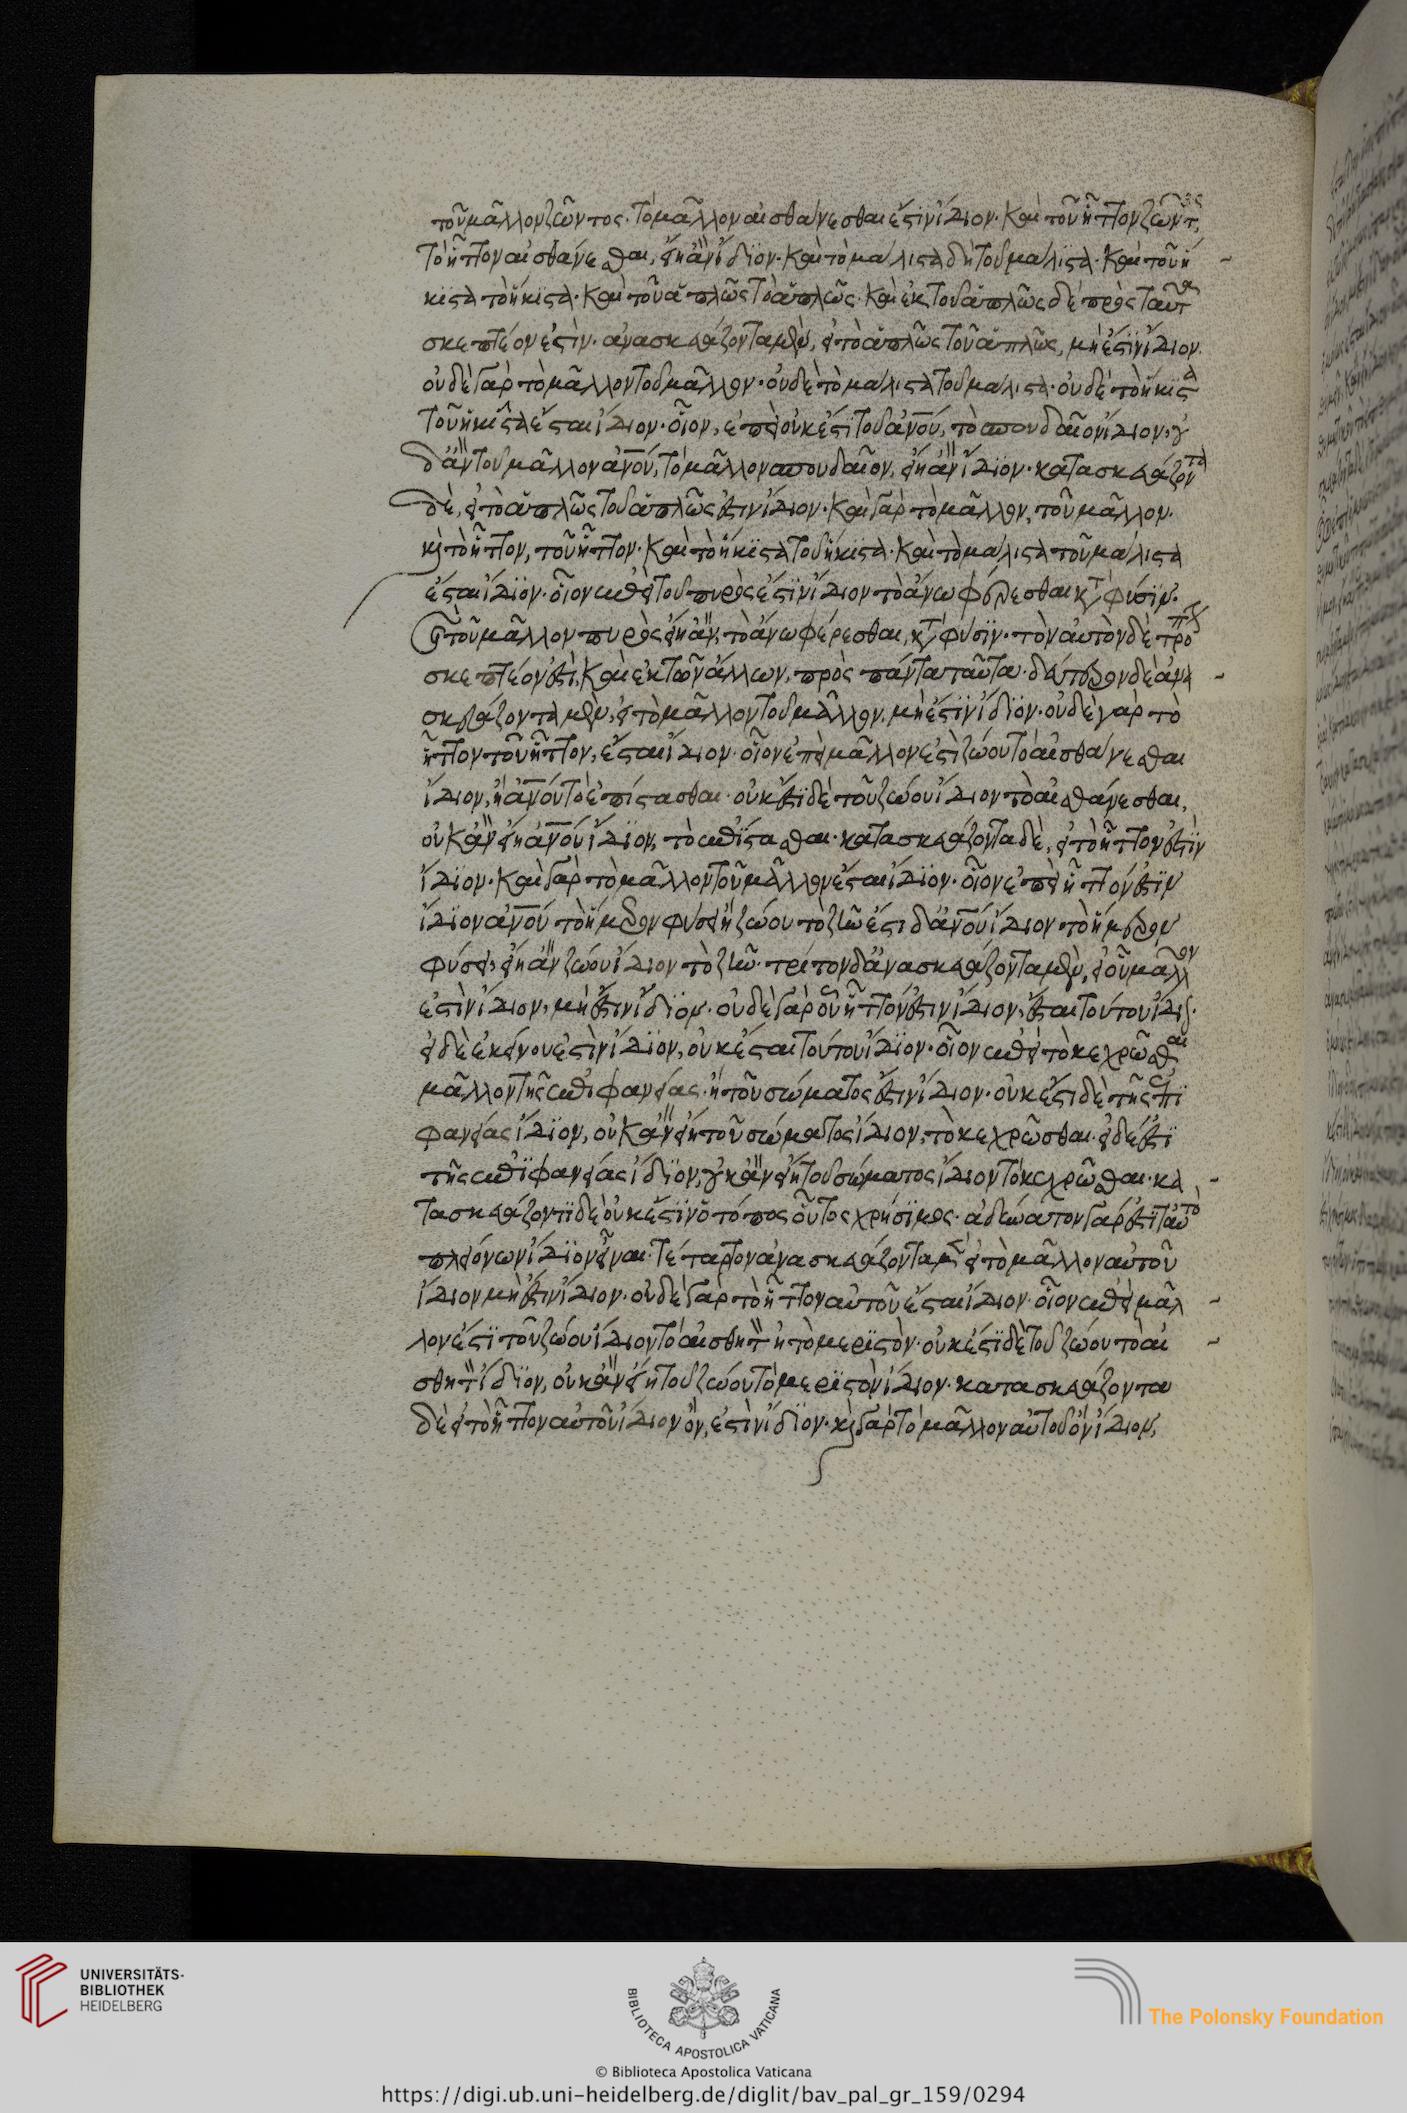 τοῦ μᾶλλον ζῶντος. τὸ μᾶλλον αἰσθάνεσθαι ἐστὶν ἴδιον. καὶ τοῦ ἧττον ζῶντος
τὸ ἧττον αἰσθάνεσθαι, εἴη ἂν ἴδιον. καὶ τὸ μάλιστα δὴ τοῦ μάλιστα. καὶ τοῦ ἥ-
κιστα τὸ ἥκιστα. καὶ τοῦ ἁπλῶς τὸ ἁπλῶς. καὶ ἐκ τοῦ ἁπλῶς δὲ πρὸς ταῦτα
σκεπτέον ἐστίν. ἀνασκευάζοντα μὲν, εἰ τὸ ἁπλῶς τοῦ ἁπλῶς, μή ἐστιν ἴδιον.
οὐδὲ γὰρ τὸ μᾶλλον τοῦ μᾶλλον. οὐδὲ τὸ μάλιστα τοῦ μάλιστα. οὐδὲ τὸ ἥκιστα
τοῦ ἥκιστα ἔσται ἴδιον. οἷον, ἐπεὶ οὐκ ἔστι τοῦ ἀνου, τὸ σπουδαῖον ἴδιον, οὐ
δ' ἂν τοῦ μᾶλλον ἀνου, τὸ μᾶλλον σπουδαῖον, εἴη ἂν ἴδιον. κατασκευάζοντα
δὲ, εἰ τὸ ἁπλῶς τοῦ ἁπλῶς ἐστιν ἴδιον. καὶ γὰρ τὸ μᾶλλον, τοῦ μᾶλλον.
κὶ τὸ ἧττον, τοῦ ἧττον. καὶ τὸ ἥκιστα τοῦ ἥκιστα. καὶ τὸ μάλιστα τοῦ μάλιστα
ἔσται ἴδιον. οἷον ἐπεὶ τοῦ πυρός ἐστιν ἴδιον τὸ ἄνω φέρεσθαι κτ φύσιν.
καὶ τοῦ μᾶλλον πυρὸς εἴη ἂν, τὸ ἄνω φέρεσθαι, κτ φύσιν. τὸν αὐτὸν δὲ τρόπον
σκεπτέον ἐστὶ, καὶ ἐκ τῶν ἄλλων, πρὸς πάντα ταῦτα. δεύτερον δὲ ἀνα-
σκευάζοντα μὲν, εἰ τὸ μᾶλλον τοῦ μᾶλλον, μή ἐστιν ἴδιον. οὐδὲ γὰρ τὸ
ἧττον τοῦ ἧττον, ἔσται ἴδιον. οἷον ἐπεὶ μᾶλλον ἐστὶ ζώου τὸ αἰσθάνεσθαι
ἴδιον, ἢ ἀνου τὸ ἐπίστασθαι. οὐκ ἔστι δὲ τοῦ ζώου ἴδιον τὸ αἰσθάνεσθαι,
οὐκ ἂν εἴη ἀνου ἴδιον, τὸ ἐπίστασθαι. κατασκευάζοντα δὲ, εἰ τὸ ἧττον ἐστὶν
ἴδιον. καὶ γὰρ τὸ μᾶλλον τοῦ μᾶλλον ἔσται ἴδιον. οἷον ἐπεὶ ἧττόν ἐστιν
ἴδιον ἀνου τὸ ἥμερον φύσει ἢ ζώου τὸ ζῆν ἔστι δ' ἀνου ἴδιον τὸ ἥμερον
φύσει, εἴη ἂν ζώου ἴδιον τὸ ζῆν. τρίτον δ' ἀνασκευάζοντα μὲν, εἰ οὗ μᾶλλον
ἐστὶν ἴδιον, μὴ ἔστιν ἴδιον. οὐδὲ γὰρ οὗ ἧττόν ἐστιν ἴδιον, ἔσται τούτου ἴδιον.
εἰ δὲ ἐκείνου ἐστὶν ἴδιον, οὐκ ἔσται τούτου ἴδιον. οἷον ἐπεὶ τὸ κεχρῶσθαι
μᾶλλον τῆς ἐπιφανείας. ἢ τοῦ σώματος ἐστιν ἴδιον. οὐκ ἔστι δὲ τῆς ἐπι
φανείας ἴδιον, οὐκ ἂν εἴη τοῦ σώματος ἴδιον, τὸ κεχρῶσθαι. εἰ δέ ἐστι
τῆς ἐπιφανείας ἴδιον, οὐκ ἂν εἴη τοῦ σώματος ἴδιον τὸ κεχρῶσθαι. κα-
τασκευάζοντι δὲ οὐκ ἔστιν ὁ τόπος οὗτος χρήσιμος. ἀδύνατον γάρ ἐστι ταὐτὸ
πλειόνων ἴδιον εἶναι. τέταρτον ἀνασκευάζοντα μὲν εἰ τὸ μᾶλλον αὐτοῦ
ἴδιον μὴ ἔστιν ἴδιον. οὐδὲ γὰρ τὸ ἧττον αὐτοῦ ἔσται ἴδιον. οἷον ἐπεὶ μᾶλ-
λον ἐστὶ τοῦ ζώου ἴδιον τὸ αἰσθητὸν ἢ τὸ μεριστόν. οὐκ ἔστι δὲ τοῦ ζώου τὸ αἰ-
σθητὸν ἴδιον, οὐκ ἂν εἴη τοῦ ζώου τὸ μεριστὸν ἴδιον. κατασκευάζοντα
δὲ εἰ τὸ ἧττον αὐτοῦ ἴδιον ὂν, ἐστὶν ἴδιον. κὶ γὰρ τὸ μᾶλλον αὐτοῦ ὂν ἴδιον,
UNIVERSITÄTS-
BIBLIOTHEK
HEIDELBERG
BIBLIOTECA APOSTOLICA VATICANA
© Biblioteca Apostolica Vaticana
The Polonsky Foundation
https://digi.ub.uni-heidelberg.de/diglit/bav_pal_gr_159/0294